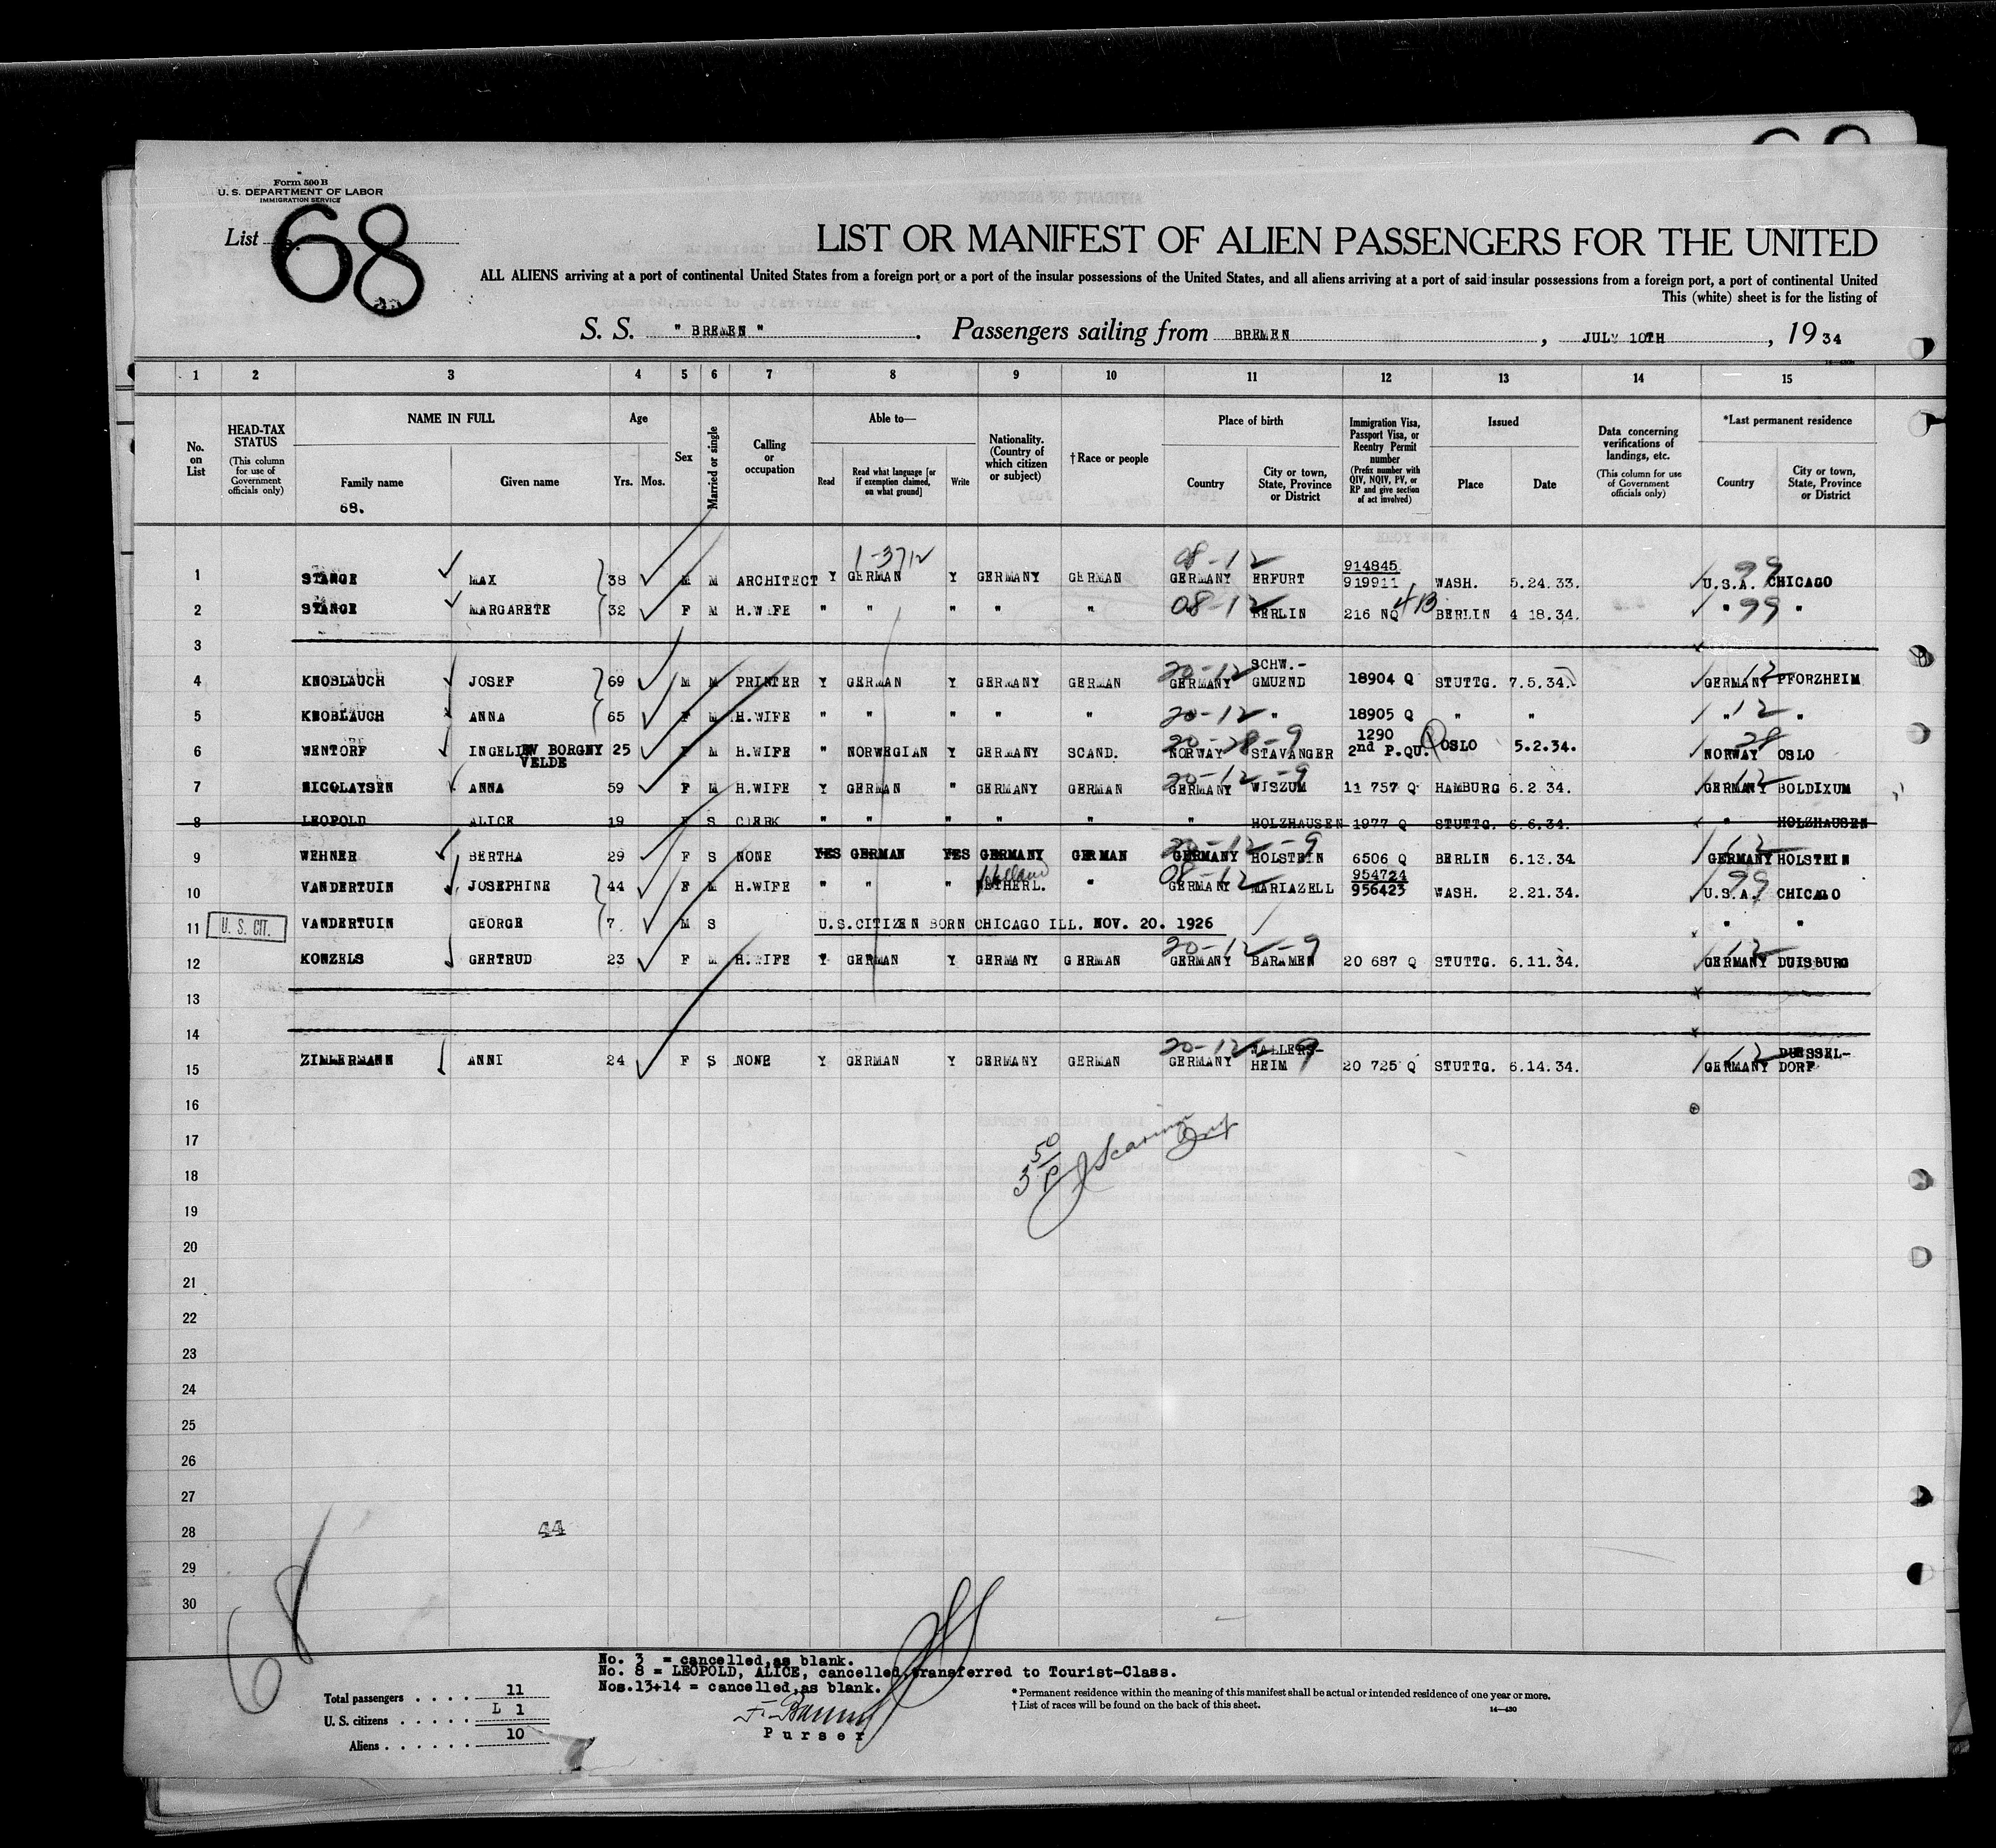 Form 500 B
U. S. DEPARTMENT OF LABOR
IMMIGRATION SERVICE
List 68
LIST OR MANIFEST OF ALIEN PASSENGERS FOR THE UNITED
ALL ALIENS arriving at a port of continental United States from a foreign port or a port of the insular possessions of the United States, and all aliens arriving at a port of said insular possessions from a foreign port, a port of continental United
This (white) sheet is for the listing of
S. S. " BREMEN ". Passengers sailing from BREMEN, JULY 10TH, 19 34
1 2 3 4 5 6 7 8 9 10 11 12 13 14 15
No. on List
HEAD-TAX STATUS (This column for use of Government officials only)
NAME IN FULL Family name Given name
68.
Age Yrs. Mos.
Sex
Married or single
Calling or occupation
Able to— Read Read what language [or if exemption claimed, on what ground] Write
Nationality. (Country of which citizen or subject)
†Race or people
Place of birth Country City or town, State, Province or District
Immigration Visa, Passport Visa, or Reentry Permit number (Prefix number with QIV, NQIV, PV, or RP and give section of act involved)
Issued Place Date
Data concerning verifications of landings, etc. (This column for use of Government officials only)
*Last permanent residence Country City or town, State, Province or District
1-371 08-12 914845 99
1 STANGE MAX 38 M M ARCHITECT Y GERMAN Y GERMANY GERMAN GERMANY ERFURT 919911 WASH. 5.24.33. U.S.A. CHICAGO
2 STANGE MARGARETE 32 F M H.WIFE " " " " " 08-12 BERLIN 216 NQ 4 13 BERLIN 4 18.34. " 99 "
3
20-12 SCHW.- 12
4 KNOBLAUCH JOSEF 69 M M PRINTER Y GERMAN Y GERMANY GERMAN GERMANY GMUEND 18904 Q STUTTG. 7.5.34. GERMANY PFORZHEIM
5 KNOBLAUCH ANNA 65 F M H.WIFE " " " " " 20-12 " 18905 Q " " " 12 "
20-28-9 1290 28
6 WENTORF INGELIV BORGNY 25 F M H.WIFE " NORWEGIAN Y GERMANY SCAND. NORWAY STAVANGER 2nd P.QU. OSLO 5.2.34. NORWAY OSLO
VELDE
20-12-9 12
7 NICOLAYSEN ANNA 59 F M H.WIFE Y GERMAN " GERMANY GERMAN GERMANY WISZUM 11 757 Q HAMBURG 6.2.34. GERMANY BOLDIXUM
8 LEOPOLD ALICE 19 F S CLERK " " " " " " HOLZHAUSEN 1977 Q STUTTG. 6.6.34. " HOLZHAUSEN
20-12-9 12
9 WEHNER BERTHA 29 F S NONE YES GERMAN YES GERMANY GERMAN GERMANY HOLSTEIN 6506 Q BERLIN 6.13.34 GERMANY HOLSTEIN
Holland 08-12 954724 99
10 VANDERTUIN JOSEPHINE 44 F M H.WIFE " " " NETHERL. " GERMANY MARIAZELL 956423 WASH. 2.21.34. U.S.A. CHICAGO
11 U. S. CIT. VANDERTUIN GEORGE 7 M S U.S.CITIZEN BORN CHICAGO ILL. NOV. 20. 1926 " "
20-12-9 12
12 KONZELS GERTRUD 23 F M H.WIFE Y GERMAN Y GERMANY GERMAN GERMANY BARAMEN 20 687 Q STUTTG. 6.11.34. GERMANY DUISBURG
13
14
20-12-9 WALLERS- 12 DUESSEL-
15 ZIMMERMANN ANNI 24 F S NONE Y GERMAN Y GERMANY GERMAN GERMANY HEIM 20 725 Q STUTTG. 6.14.34. GERMANY DORF
16
17
18
19
20
21
22
23
24
25
26
27
28 44
29
30
68
No. 3 = cancelled,as blank.
No. 8 = LEOPOLD, ALICE, cancelled,transferred to Tourist-Class.
Nos.13+14 = cancelled,as blank.
Total passengers . . . . 11
U. S. citizens . . . . . L 1
Aliens . . . . . . 10
Purser
* Permanent residence within the meaning of this manifest shall be actual or intended residence of one year or more.
† List of races will be found on the back of this sheet.
14—430